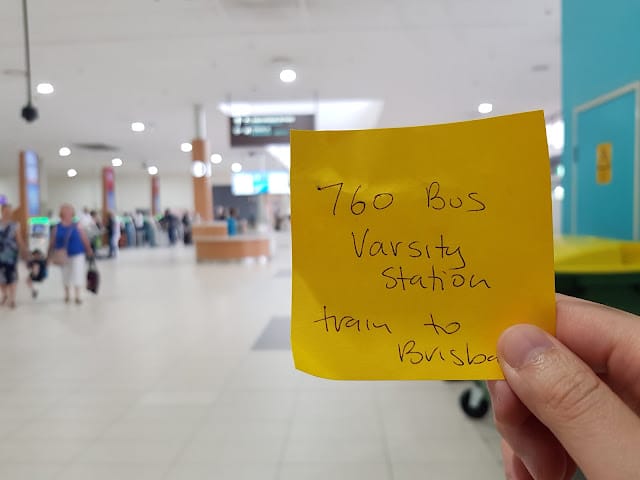 760 Bus
Varsity
Station
train to
Brisba